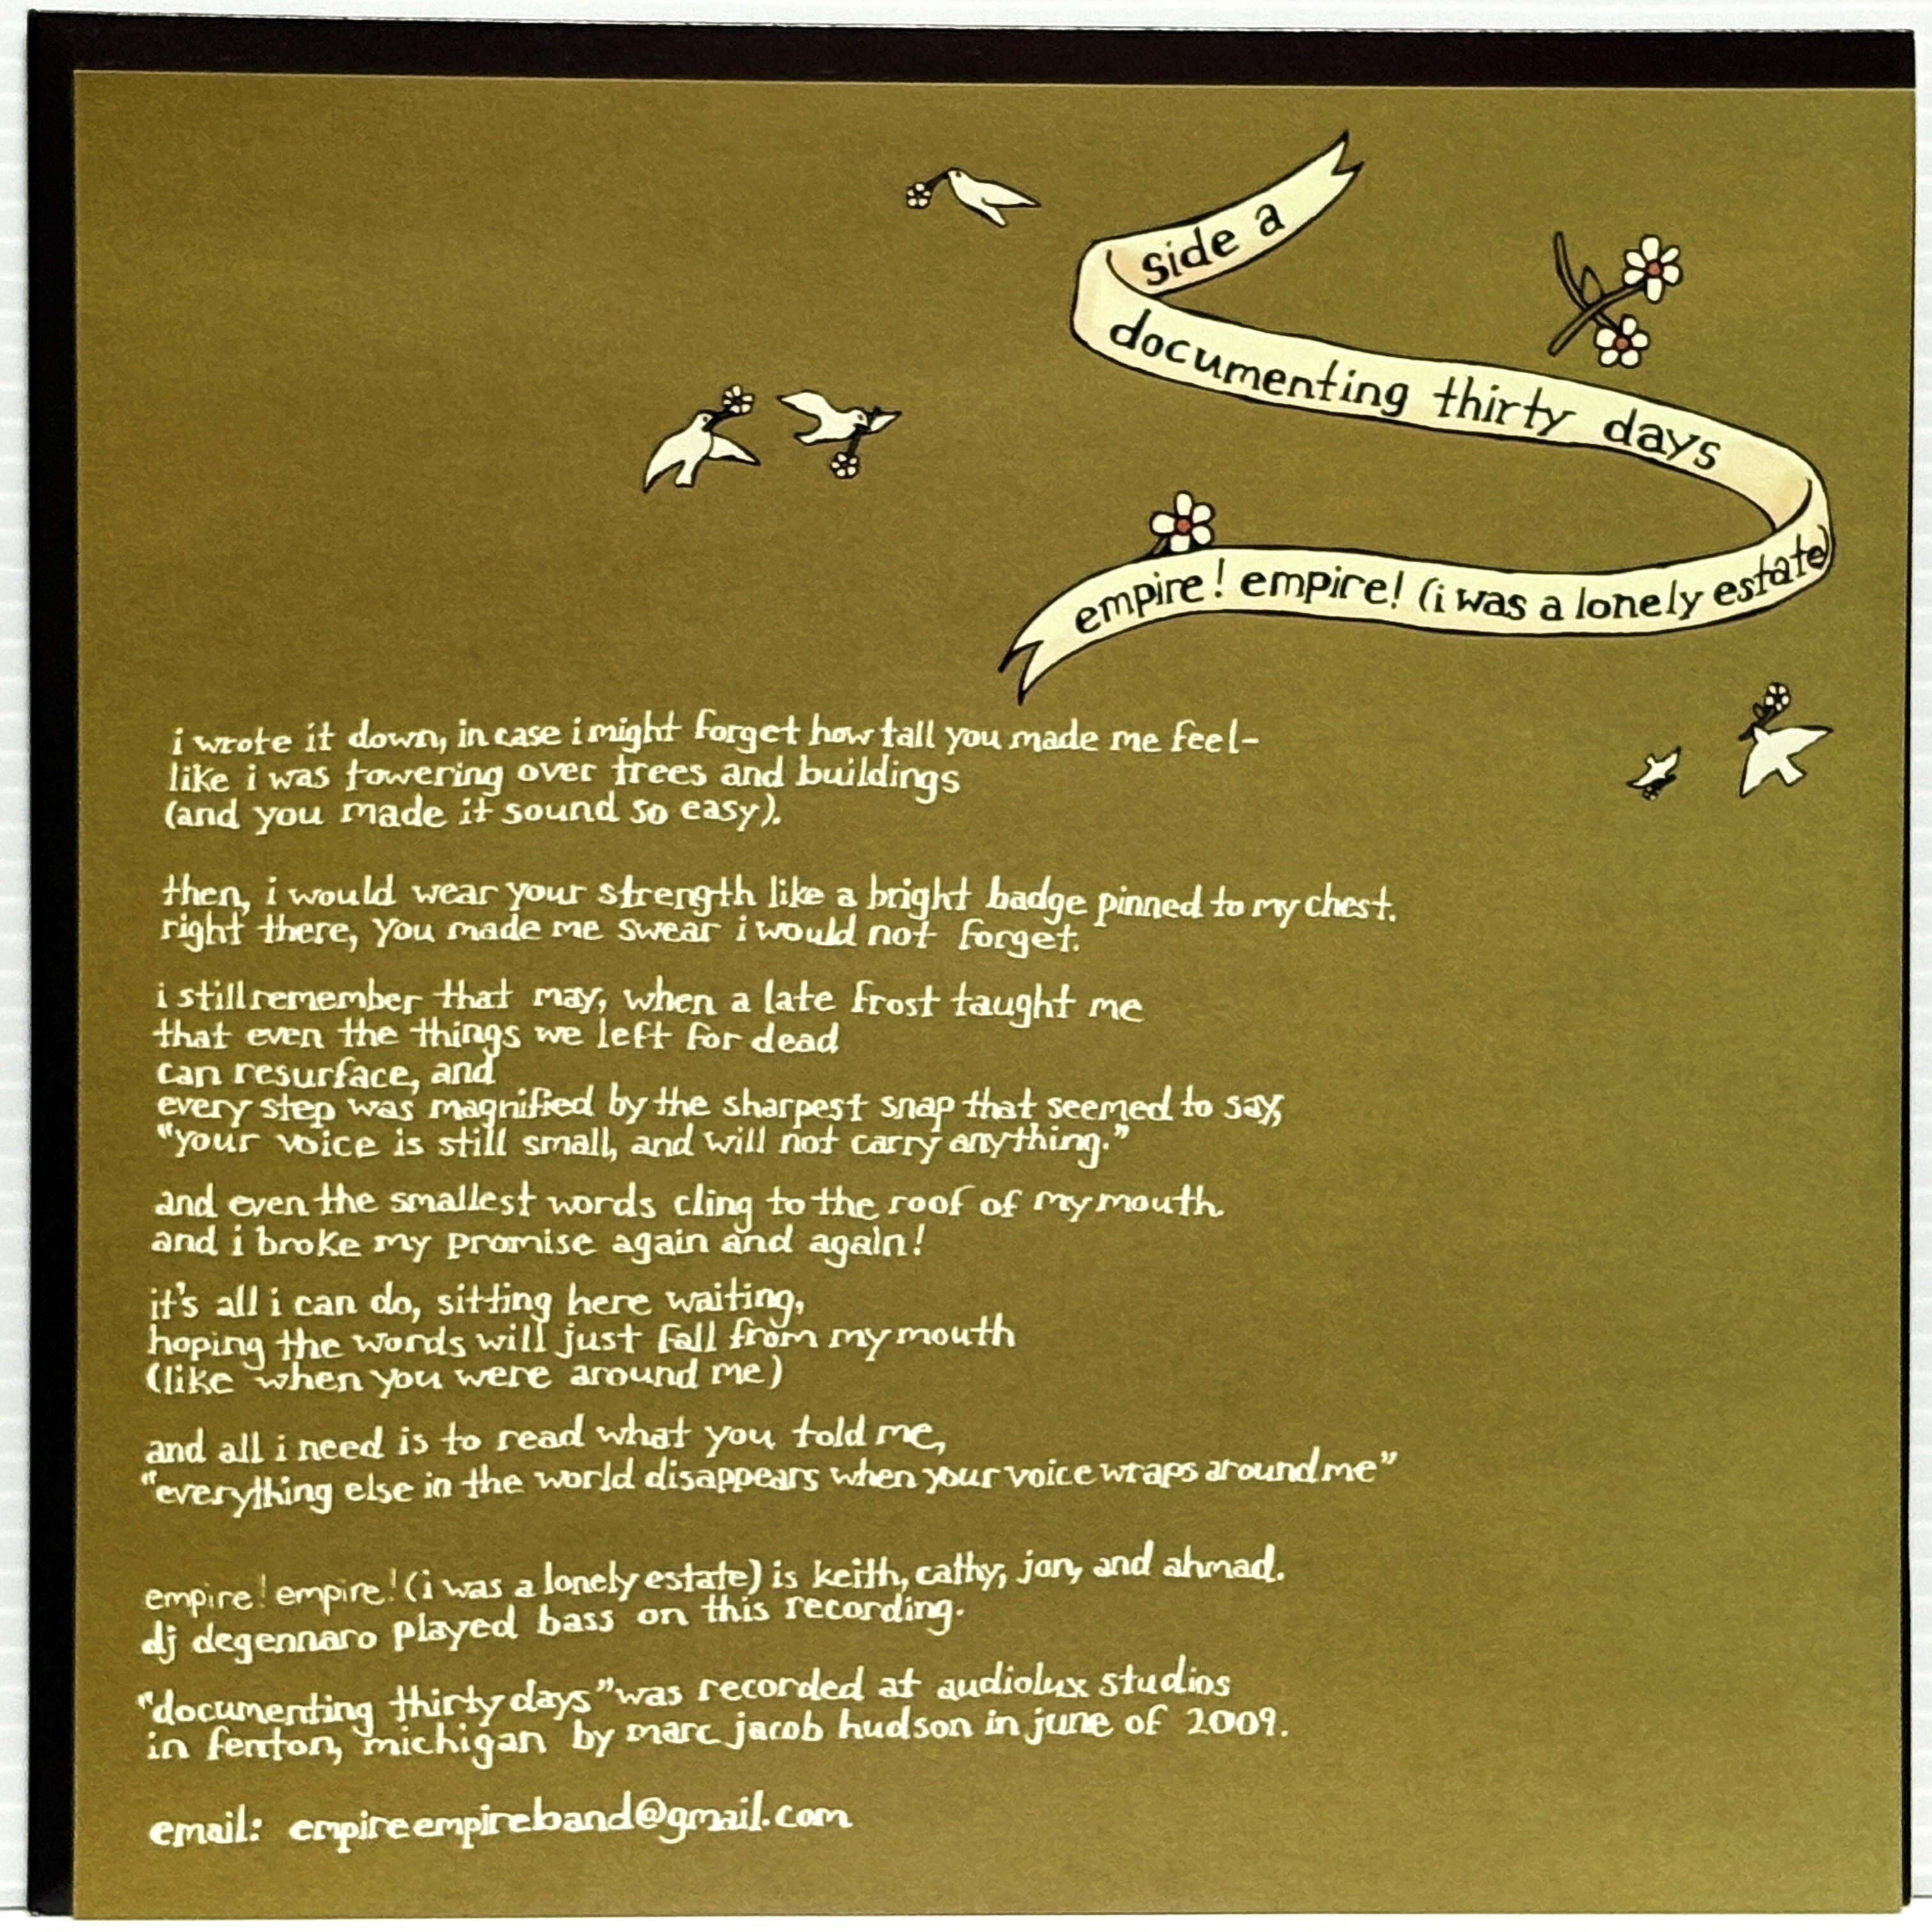 side a
documenting thirty days
empire! empire! (i was a lonely estate)
i wrote it down, in case i might forget how tall you made me feel-
like i was towering over trees and buildings
(and you made it sound so easy).
then, i would wear your strength like a bright badge pinned to my chest.
right there, you made me swear i would not forget.
i still remember that may, when a late frost taught me
that even the things we left for dead
can resurface, and
every step was magnified by the sharpest snap that seemed to say,
"your voice is still small, and will not carry anything."
and even the smallest words cling to the roof of my mouth.
and i broke my promise again and again!
it's all i can do, sitting here waiting,
hoping the words will just fall from my mouth
(like when you were around me)
and all i need is to read what you told me,
"everything else in the world disappears when your voice wraps around me"
empire! empire! (i was a lonely estate) is keith, cathy, jon, and ahmad.
dj degennaro played bass on this recording.
"documenting thirty days" was recorded at audiolux studios
in fenton, michigan by marc jacob hudson in june of 2009.
email: empireempireband@gmail.com